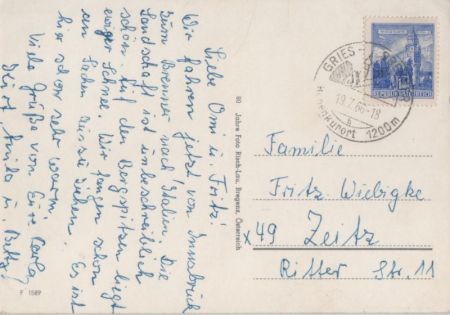 Liebe Omi u. Fritz!
Wir fahren jetzt von Innsbruck
zum Brenner nach Italien. Die
Landschaft ist unbeschreiblich
schön. Auf den Bergspitzen liegt
ewiger Schnee. Wir fangen schon
an Jacken auszuziehen. Es ist
hier schon sehr warm.
Viele Grüße von Eure
Kurt, Anita u.
P 1589
80 Jahre Foto Risch-Lau, Bregenz, Österreich
GRIES
19.7.66-18
Höhenkurort 1200m
b
Familie
Fritz Wiebigke
x49 Zeitz
Ritter Str. 11